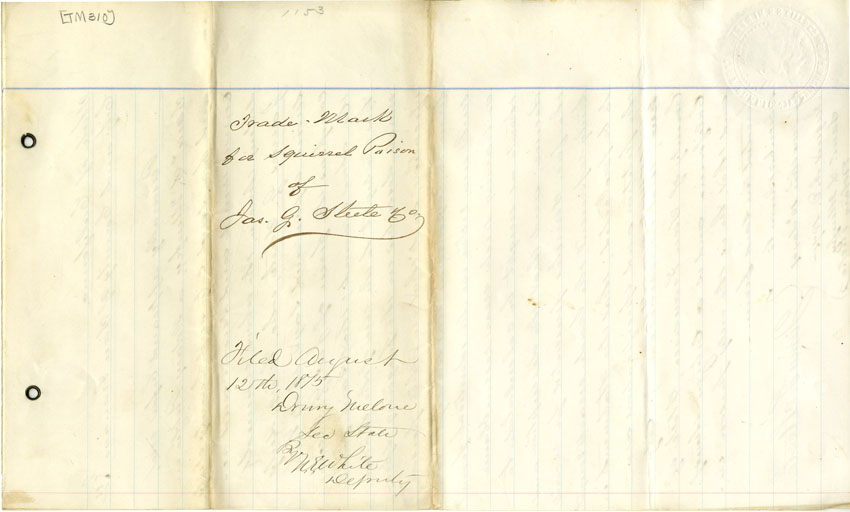 [TM310]
1153
Trade-Mark
for Squirrel Poison
of
Jas. G. Steele & Co.
Filed August
12th, 1875
Drury Melone
Sec State
By
White
Deputy